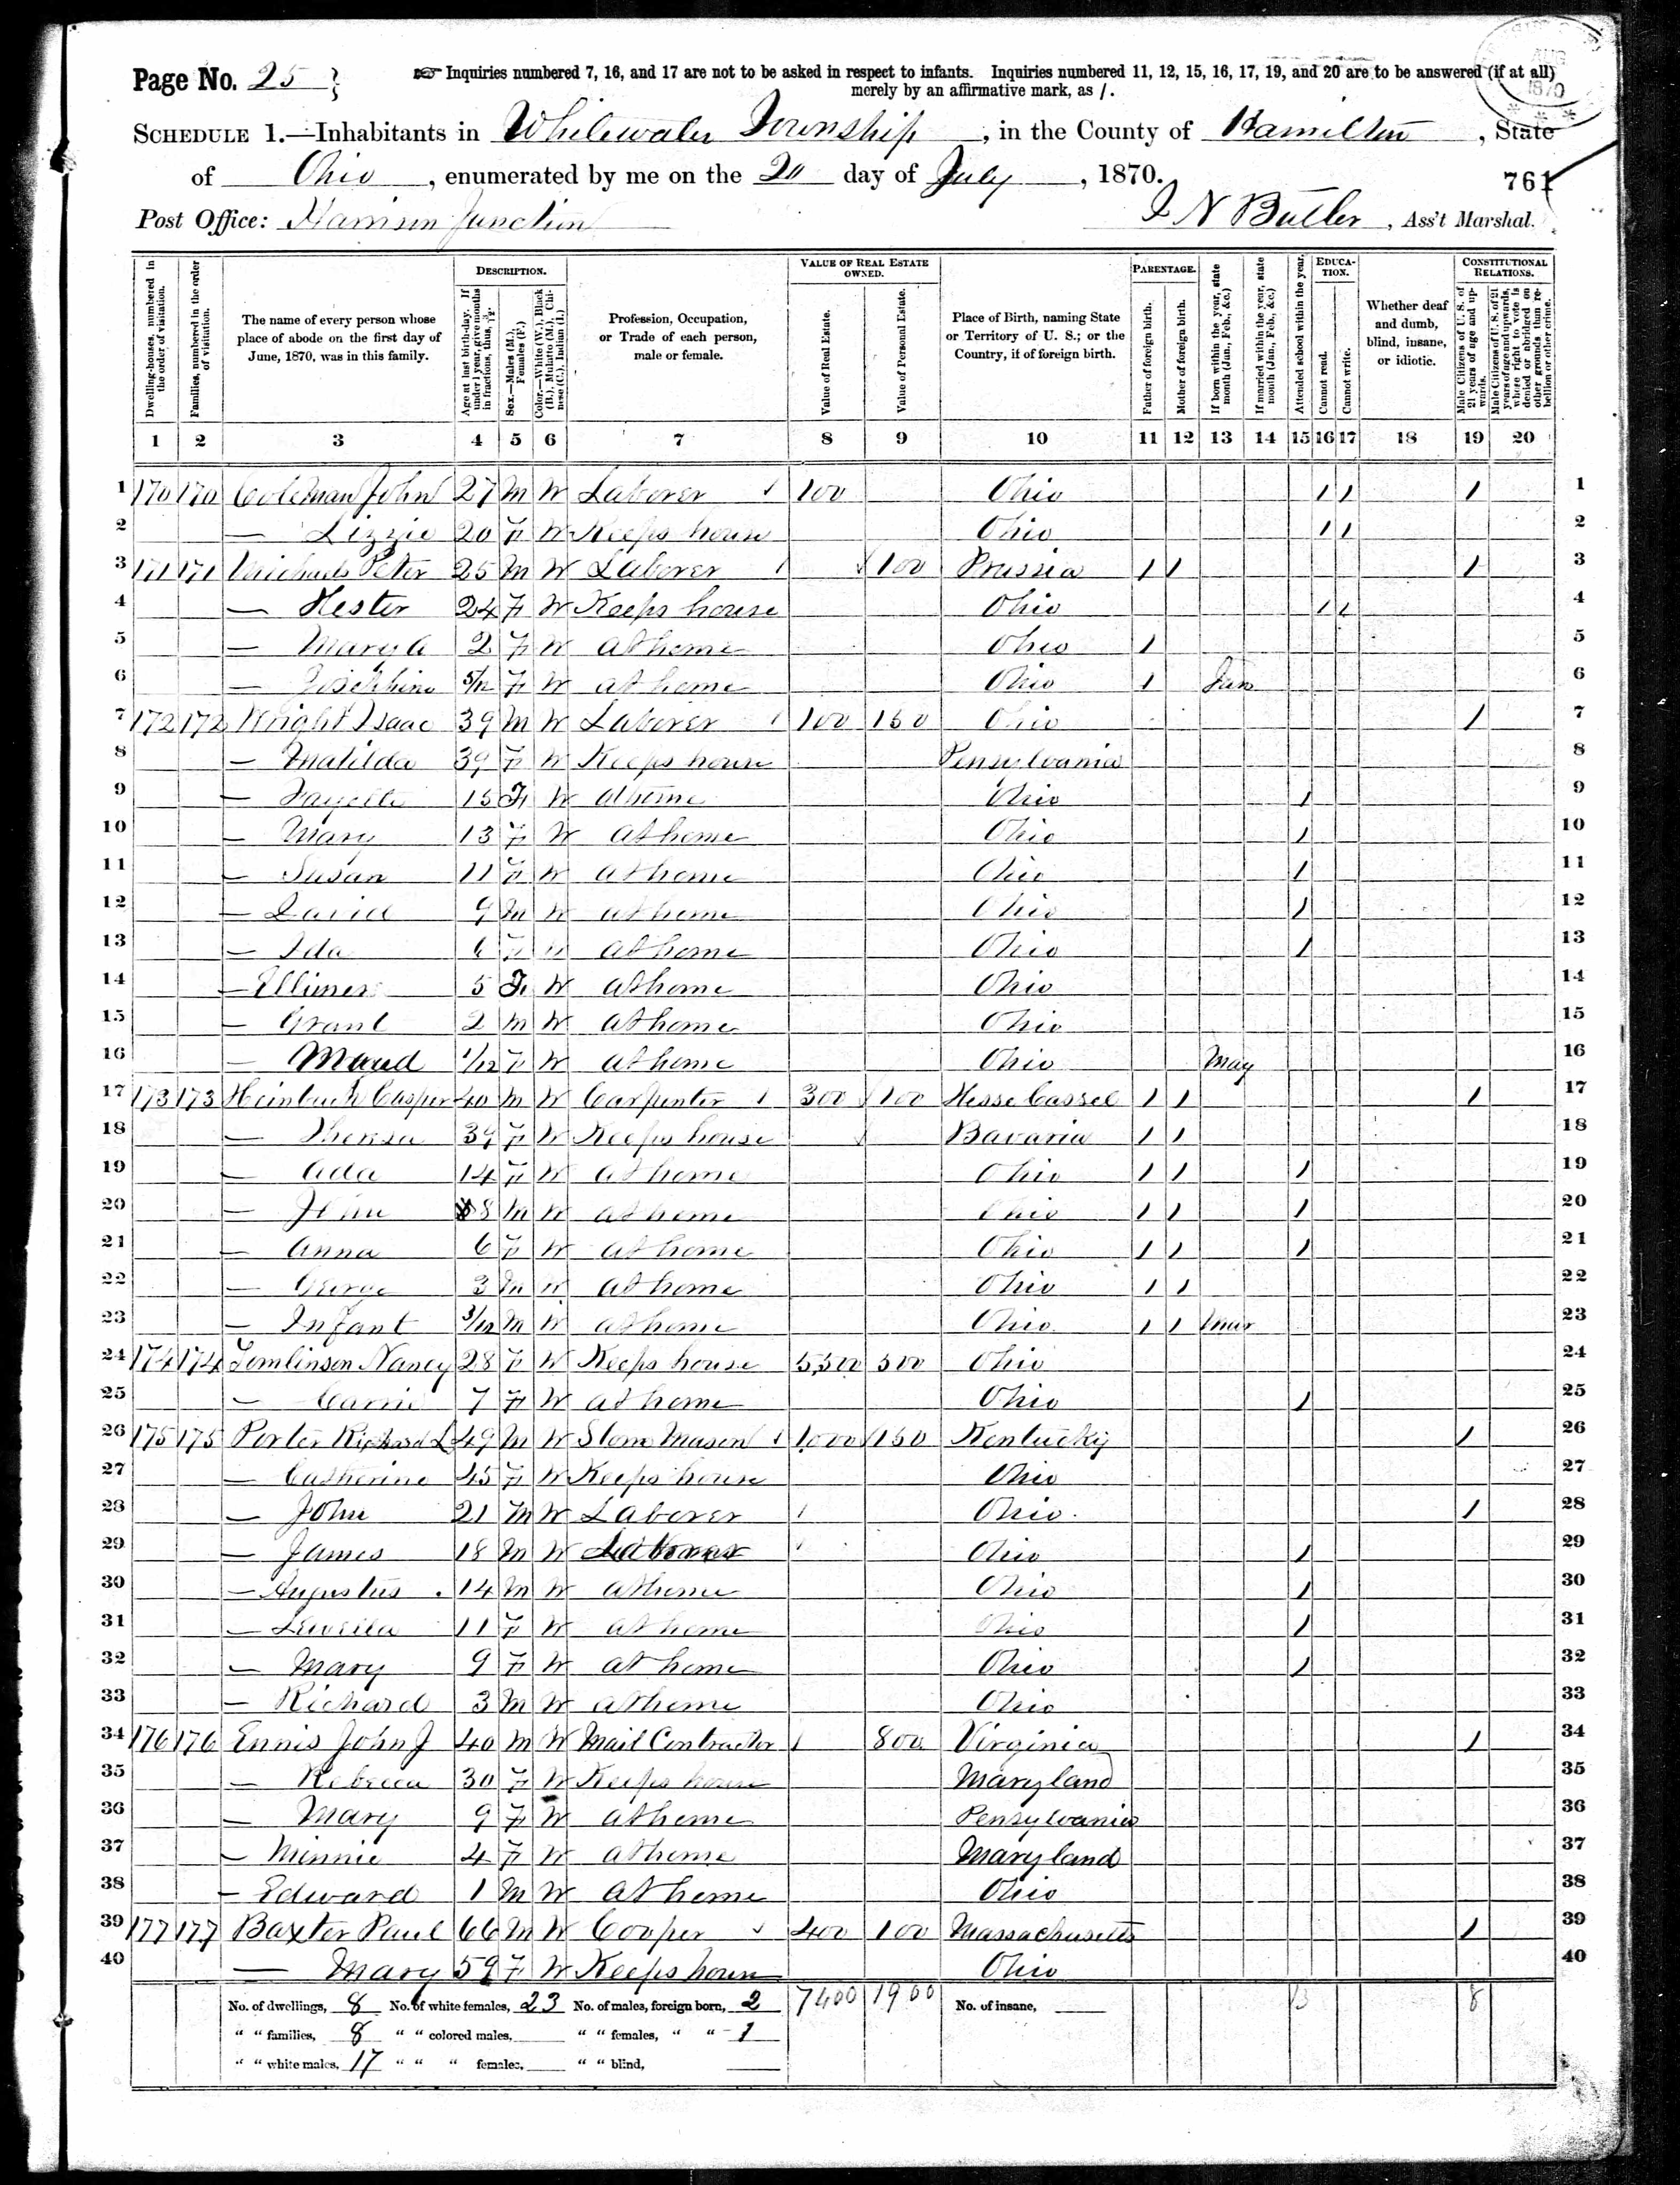 Page No. 25
☞ Inquiries numbered 7, 16, and 17 are not to be asked in respect to infants. Inquiries numbered 11, 12, 15, 16, 17, 19, and 20 are to be answered (if at all)
merely by an affirmative mark, as /.
1870
SCHEDULE 1.—Inhabitants in Whitewater Township, in the County of Hamilton, State
of Ohio, enumerated by me on the 20 day of July, 1870.
761
Post Office: Harrison Junction
J N Butler, Ass't Marshal.
Dwelling-houses, numbered in the order of visitation.
Families, numbered in the order of visitation.
The name of every person whose place of abode on the first day of June, 1870, was in this family.
DESCRIPTION.
Age at last birth-day. If under 1 year, give months in fractions, thus, 3/12.
Sex.—Males (M.), Females (F.)
Color.—White (W.), Black (B.), Mulatto (M.), Chinese (C.), Indian (I.)
Profession, Occupation, or Trade of each person, male or female.
VALUE OF REAL ESTATE OWNED.
Value of Real Estate.
Value of Personal Estate.
Place of Birth, naming State or Territory of U. S.; or the Country, if of foreign birth.
PARENTAGE.
Father of foreign birth.
Mother of foreign birth.
If born within the year, state month (Jan., Feb., &c.)
If married within the year, state month (Jan., Feb., &c.)
Attended school within the year.
EDUCATION.
Cannot read.
Cannot write.
Whether deaf and dumb, blind, insane, or idiotic.
CONSTITUTIONAL RELATIONS.
Male Citizens of U. S. of 21 years of age and upwards.
Male Citizens of U. S. of 21 years of age and upwards, whose right to vote is denied or abridged on other grounds than rebellion or other crime.
1 2 3 4 5 6 7 8 9 10 11 12 13 14 15 16 17 18 19 20
1 170 170 Coleman John 27 M W Laborer / 100 Ohio / / / 1
2 — Lizzie 20 F W Keeps house Ohio / / 2
3 171 171 Michals Peter 25 M W Laborer / 100 Prussia / / / 3
4 — Hester 24 F W Keeps house Ohio / / 4
5 — Mary A 2 F W at home Ohio / 5
6 — Josephine 5/12 F W at home Ohio / Jan 6
7 172 172 Wright Isaac 39 M W Laborer / 100 150 Ohio / 7
8 — Matilda 39 F W Keeps house Pensylvania 8
9 — Fayette 15 F W at home Ohio / 9
10 — Mary 13 F W at home Ohio / 10
11 — Susan 11 F W at home Ohio / 11
12 — David 9 M W at home Ohio / 12
13 — Ida 6 F W at home Ohio / 13
14 — Ellimer 5 F W at home Ohio 14
15 — Grant 2 M W at home Ohio 15
16 — Maud 1/12 F W at home Ohio May 16
17 173 173 Heinbuch Casper 40 M W Carpenter / 300 100 Hesse Cassel / / / 17
18 — Theresa 39 F W Keeps house Bavaria / / 18
19 — Ada 14 F W at home Ohio / / / 19
20 — John 8 M W at home Ohio / / / 20
21 — Anna 6 F W at home Ohio / / / 21
22 — George 3 M W at home Ohio / / 22
23 — Infant 3/12 M W at home Ohio / / Mar 23
24 174 174 Tomlinson Nancy 28 F W Keeps house 5,500 500 Ohio 24
25 — Carrie 7 F W at home Ohio / 25
26 175 175 Porter Richard L 49 M W Stone Mason / 1,000 150 Kentucky / 26
27 — Catherine 45 F W Keeps house Ohio 27
28 — John 21 M W Laborer / Ohio / 28
29 — James 18 M W Laborer / Ohio / 29
30 — Augustus 14 M W at home Ohio / 30
31 — 11 F W at home Ohio / 31
32 — Mary 9 F W at home Ohio / 32
33 — Richard 3 M W at home Ohio 33
34 176 176 Ennis John J 40 M W Mail Contractor / 800 Virginia / 34
35 — Rebecca 30 F W Keeps house Maryland 35
36 — Mary 9 F W at home Pensylvania 36
37 — Minnie 4 F W at home Maryland 37
38 — Edward 1 M W at home Ohio 38
39 177 177 Baxter Paul 66 M W Cooper / 400 100 Massachusetts / 39
40 — Mary 59 F W Keeps house Ohio 40
No. of dwellings, 8 No. of white females, 23 No. of males, foreign born, 2 7400 1900 No. of insane, 13 8
" " families, 8 " " colored males, " " females, " " 1
" " white males, 17 " " " females, " " blind,